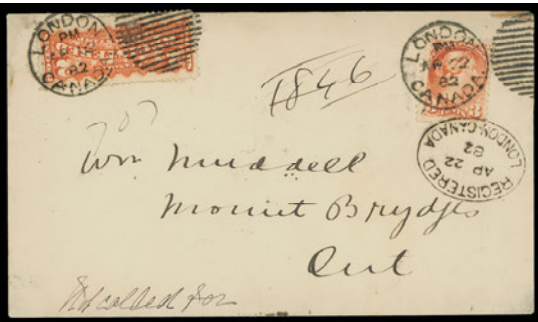 LONDON
PM
AP 22
82
CANADA
LONDON
PM
AP 22
82
CANADA
1846
REGISTERED
AP 22
82
LONDON-CANADA
707
Wm Muddell
Mount Brydges
Ont
Not called for